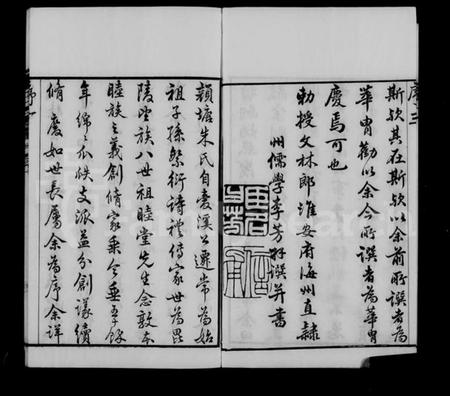 斯歟其在斯歟以余前所譔者為
華胄勸以余今所譔者為華胄
慶焉可也
勅授文林郎淮安府海州直隸
州儒學李芳 譔并書
顏塘朱氏自愛溪公遷常為始
祖子孫繁衍詩禮傳家世為毘
陵望族八世祖睦堂先生念敦本
睦族之義創脩家乘今垂百餘
年綿瓜帙文派益分創議續
脩 慶如世長屬余為序余詳